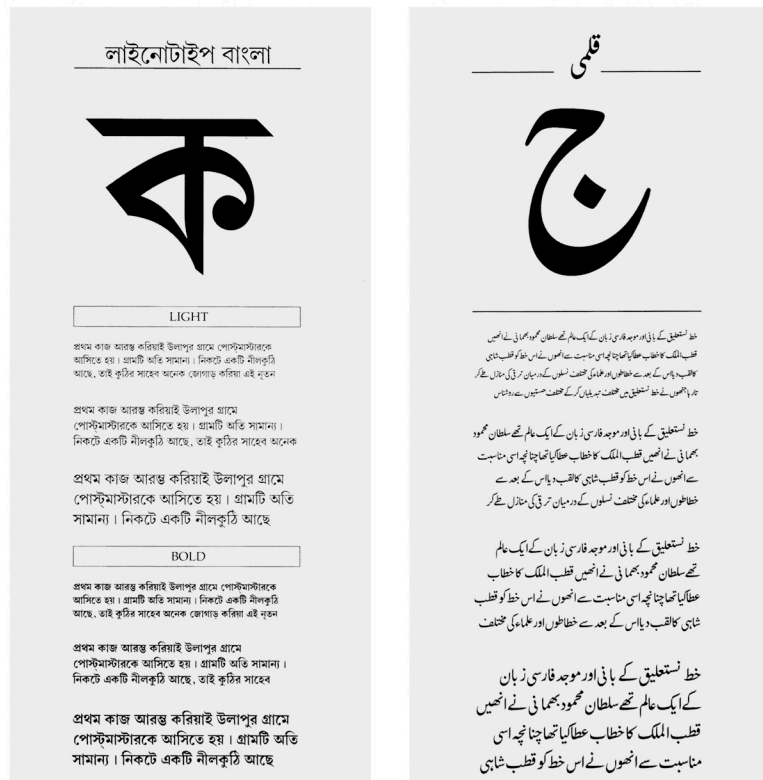 লাইনোটাইপ বাংলা
ক
LIGHT
প্রথম কাজ আরম্ভ করিয়াই উলাপুর গ্রামে পোস্টমাস্টারকে
আসিতে হয়। গ্রামটি অতি সামান্য। নিকটে একটি নীলকুঠি
আছে, তাই কুঠির সাহেব অনেক জোগাড় করিয়া এই নূতন
প্রথম কাজ আরম্ভ করিয়াই উলাপুর গ্রামে
পোস্ট্‌মাস্টারকে আসিতে হয়। গ্রামটি অতি সামান্য।
নিকটে একটি নীলকুঠি আছে, তাই কুঠির সাহেব অনেক
প্রথম কাজ আরম্ভ করিয়াই উলাপুর গ্রামে
পোস্ট্‌মাস্টারকে আসিতে হয়। গ্রামটি অতি
সামান্য। নিকটে একটি নীলকুঠি আছে
BOLD
প্রথম কাজ আরম্ভ করিয়াই উলাপুর গ্রামে পোস্টমাস্টারকে
আসিতে হয়। গ্রামটি অতি সামান্য। নিকটে একটি নীলকুঠি
আছে, তাই কুঠির সাহেব অনেক জোগাড় করিয়া এই নূতন
প্রথম কাজ আরম্ভ করিয়াই উলাপুর গ্রামে
পোস্ট্‌মাস্টারকে আসিতে হয়। গ্রামটি অতি সামান্য।
নিকটে একটি নীলকুঠি আছে, তাই কুঠির সাহেব
প্রথম কাজ আরম্ভ করিয়াই উলাপুর গ্রামে
পোস্ট্‌মাস্টারকে আসিতে হয়। গ্রামটি অতি
সামান্য। নিকটে একটি নীলকুঠি আছে
قلمی
ج
خط نستعلیق کے بانی اور موجد فارسی زبان کے ایک عالم تھے سلطان محمود بھمانی نے انھیں
قطب الملک کا خطاب عطا کیا تھا چنانچہ اسی مناسبت سے انھوں نے اس خط کو قطب شاہی
کا لقب دیا اس کے بعد سے خطاطوں اور علماء کی مختلف نسلوں کے درمیان ترقی کی منازل طے کر
تا رہا جنھوں نے خط نستعلیق میں مختلف تبدیلیاں کر کے مختلف صنفوں سے روشناس
خط نستعلیق کے بانی اور موجد فارسی زبان کے ایک عالم تھے سلطان محمود
بھمانی نے انھیں قطب الملک کا خطاب عطا کیا تھا چنانچہ اسی مناسبت
سے انھوں نے اس خط کو قطب شاہی کا لقب دیا اس کے بعد سے
خطاطوں اور علماء کی مختلف نسلوں کے درمیان ترقی کی منازل طے کر
خط نستعلیق کے بانی اور موجد فارسی زبان کے ایک عالم
تھے سلطان محمود بھمانی نے انھیں قطب الملک کا خطاب
عطا کیا تھا چنانچہ اسی مناسبت سے انھوں نے اس خط کو قطب
شاہی کا لقب دیا اس کے بعد سے خطاطوں اور علماء کی مختلف
خط نستعلیق کے بانی اور موجد فارسی زبان
کے ایک عالم تھے سلطان محمود بھمانی نے انھیں
قطب الملک کا خطاب عطا کیا تھا چنانچہ اسی
مناسبت سے انھوں نے اس خط کو قطب شاہی